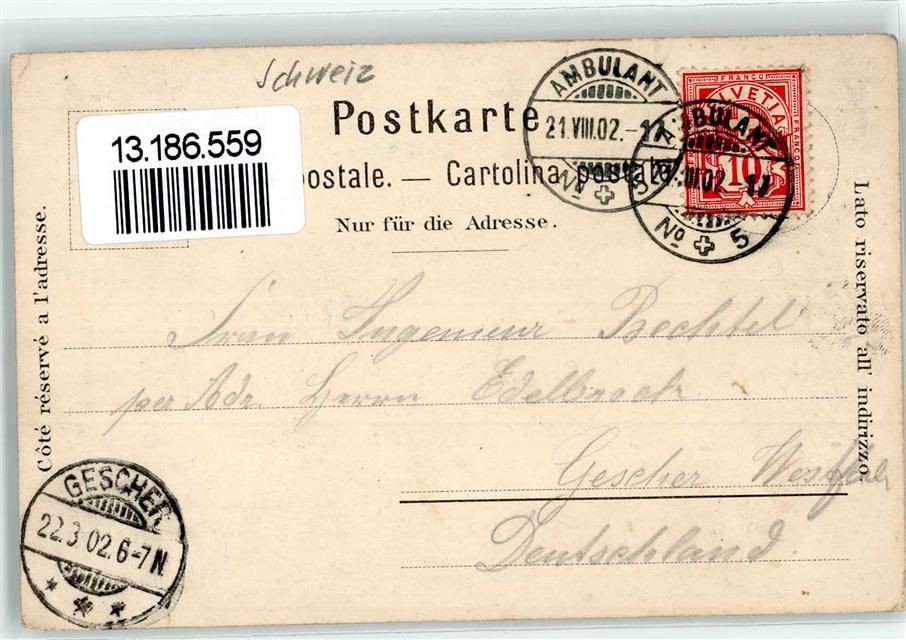 Schweiz
Postkarte
13.186.559
postale. — Cartolina postale
Nur für die Adresse.
AMBULANT
21.VIII.02.-17
No 5
AMBULANT
VIII.02.-17
No 5
FRANCO
HELVETIA
FRANCO
10
Côté réservé a l'adresse.
Lato riservato all' indirizzo.
Frau Ingenieur Bechtel
per Adr. Herrn Edelbrock
Gescher Westfalen
Deutschland.
GESCHER
22.3.02.6-7N.
* * *